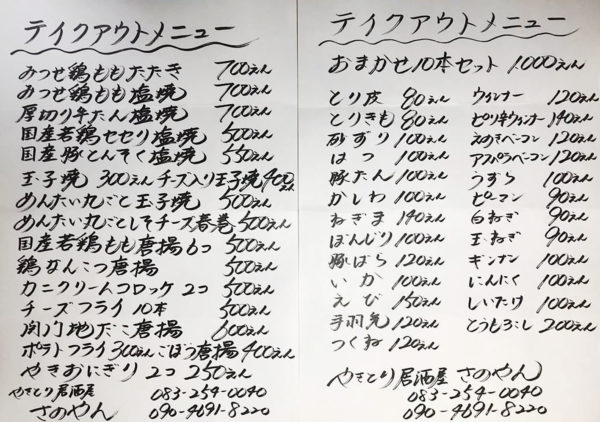 テイクアウトメニュー
みつせ鶏ももたたき 700えん
みつせ鶏もも塩焼 700えん
厚切り牛たん塩焼 700えん
国産若鶏セセリ塩焼 500えん
国産豚とんそく塩焼 550えん
玉子焼 300えん チーズ入り玉子焼 400えん
めんたい丸ごと玉子焼 500えん
めんたい丸ごとしそチーズ春巻 500えん
国産若鶏もも唐揚6コ 500えん
鶏なんこつ唐揚 500えん
カニクリームコロッケ 2コ 500えん
チーズフライ 10本 500えん
関門地だこ唐揚 600えん
ポテトフライ 300えん ごぼう唐揚 400えん
やきおにぎり 2コ 250えん
やきとり居酒屋 083-254-0040
さのやん 090-4691-8220
テイクアウトメニュー
おまかせ10本セット 1.000えん
とり皮 80えん ウィンナー 120えん
とりきも 80えん ピリ辛ウィンナー 140えん
砂ずり 100えん えのきベーコン 120えん
はつ 100えん アスパラベーコン 120えん
豚たん 100えん うずら 100えん
かしわ 100えん ピーマン 90えん
ねぎま 140えん 白ねぎ 90えん
ぼんじり 100えん 玉ねぎ 90えん
豚ばら 120えん ギンナン 100えん
いか 100えん にんにく 100えん
えび 150えん しいたけ 100えん
手羽先 120えん とうもろこし 200えん
つくね 120えん
やきとり居酒屋 さのやん
083-254-0040
090-4691-8220